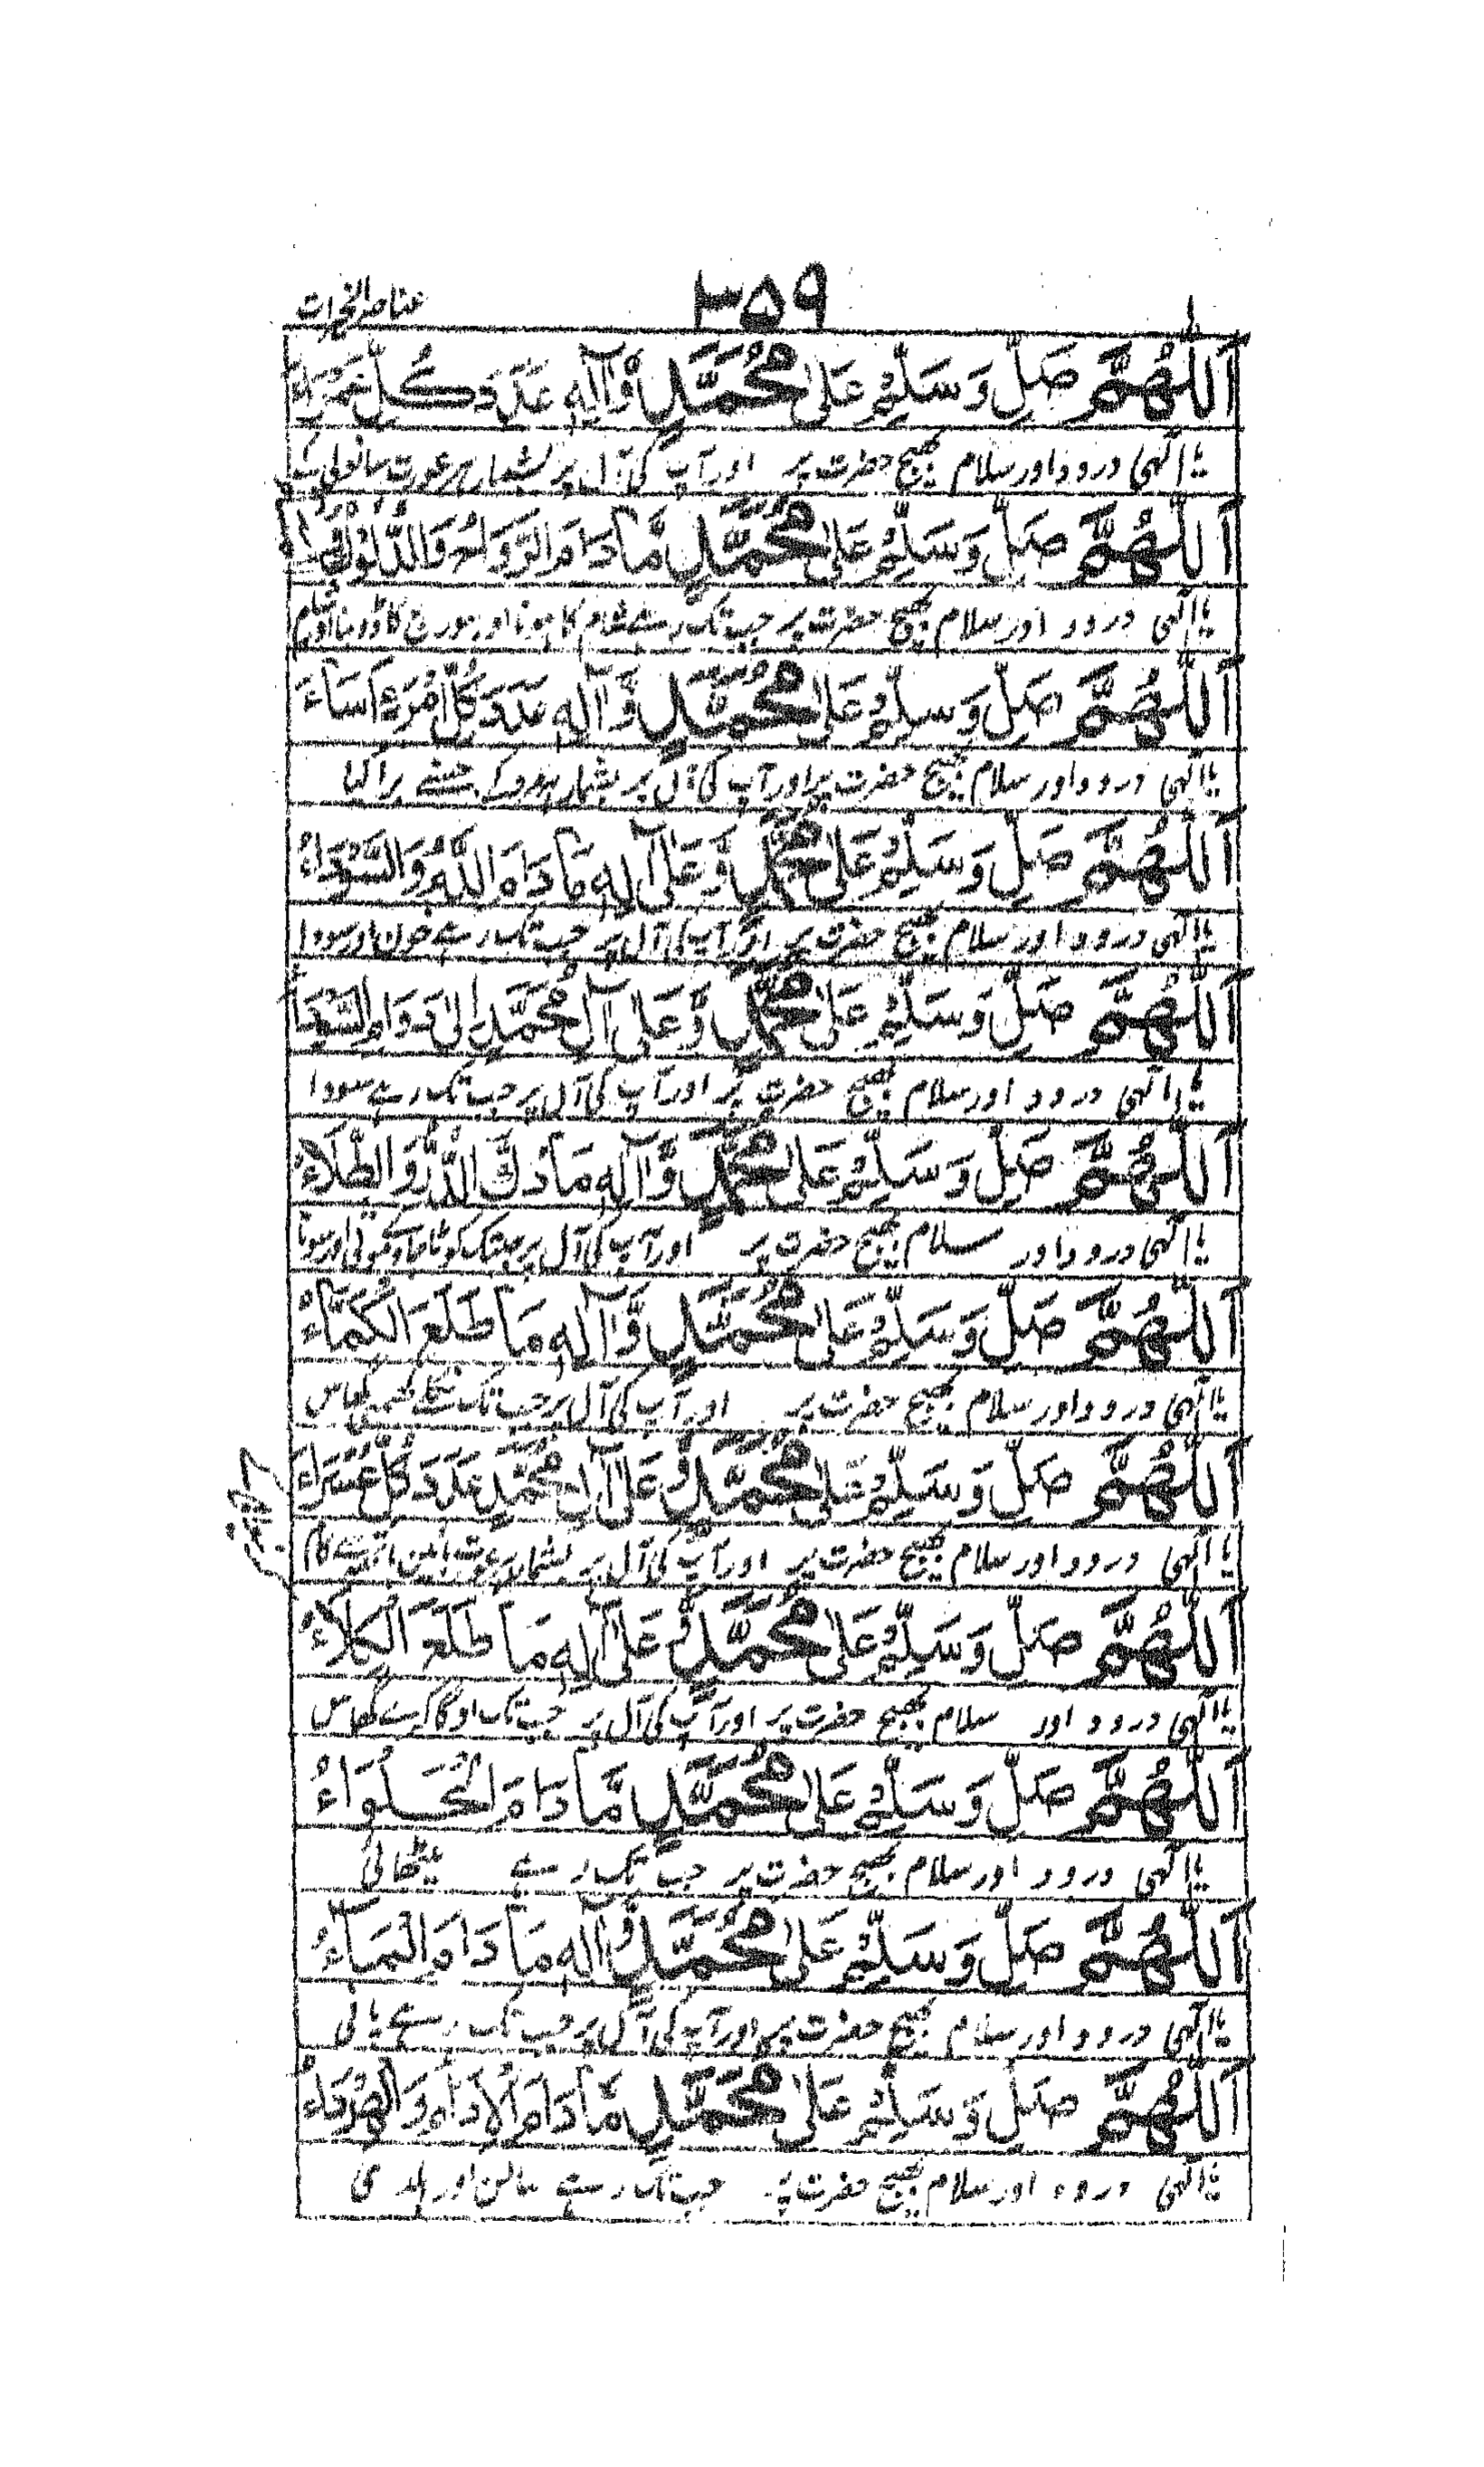 عناصر الخیرات
۳۵۹
اَللّٰهُمَّ صَلِّ وَسَلِّمْ عَلٰى مُحَمَّدٍ وَّاٰلِهٖ عَدَدَ كُلِّ
یا الٰہی درود اور سلام بھیج حضرت پر اور آپ کی آل پر بشمار ہر عورت سانولی کے
اَللّٰهُمَّ صَلِّ وَسَلِّمْ عَلٰى مُحَمَّدٍ مَّا دَامَ الرَّوَاحُ وَالدُّلُوْكُ
یا الٰہی درود اور سلام بھیج حضرت پر جب تک رہے شام کا ہونا اور سورج کا ڈوبنا
اَللّٰهُمَّ صَلِّ وَسَلِّمْ عَلٰى مُحَمَّدٍ وَّاٰلِهٖ عَدَدَ كُلِّ امْرَءٍ اَسَاءَ
یا الٰہی درود اور سلام بھیج حضرت پر اور آپ کی آل پر بشمار ہر مرد کے جسنے برا کیا
اَللّٰهُمَّ صَلِّ وَسَلِّمْ عَلٰى مُحَمَّدٍ وَّعَلٰى اٰلِهٖ مَا دَامَ الدَّمُ وَالسَّوْدَاءُ
یا الٰہی درود اور سلام بھیج حضرت پر اور آپ کی آل پر جب تک رہے خون اور سودا
اَللّٰهُمَّ صَلِّ وَسَلِّمْ عَلٰى مُحَمَّدٍ وَّعَلٰى اٰلِ مُحَمَّدٍ اِلٰى دَوَامِ
یا الٰہی درود اور سلام بھیج حضرت پر اور آپ کی آل پر جب تک رہے سودا
اَللّٰهُمَّ صَلِّ وَسَلِّمْ عَلٰى مُحَمَّدٍ وَّاٰلِهٖ مَا دُقَّ الدُّرُّ وَالطِّلَاءُ
یا الٰہی درود اور سلام بھیج حضرت پر اور آپ کی آل پر جبتک کوٹا جاوے موتی اور سونا
اَللّٰهُمَّ صَلِّ وَسَلِّمْ عَلٰى مُحَمَّدٍ وَّاٰلِهٖ مَا طَلَعَ الْكُمَاءُ
یا الٰہی درود اور سلام بھیج حضرت پر اور آپ کی آل پر جب تک نکلے گھاس
اَللّٰهُمَّ صَلِّ وَسَلِّمْ عَلٰى مُحَمَّدٍ وَّعَلٰى اٰلِ مُحَمَّدٍ عَدَدَ كُلِّ عَسْرَاءَ
یا الٰہی درود اور سلام بھیج حضرت پر اور آپ کی آل پر بشمار ہر عورت بائیں ہاتھ سے کام
اَللّٰهُمَّ صَلِّ وَسَلِّمْ عَلٰى مُحَمَّدٍ وَّعَلٰى اٰلِهٖ مَا طَلَعَ الْكَلَاءُ
یا الٰہی درود اور سلام بھیج حضرت پر اور آپ کی آل پر جب تک اوگا کرے گھاس
اَللّٰهُمَّ صَلِّ وَسَلِّمْ عَلٰى مُحَمَّدٍ مَّا دَامَ الْحَلْوَاءُ
یا الٰہی درود اور سلام بھیج حضرت پر جب تک رہے میٹھائی
اَللّٰهُمَّ صَلِّ وَسَلِّمْ عَلٰى مُحَمَّدٍ وَّاٰلِهٖ مَا دَامَ الْمَاءُ
یا الٰہی درود اور سلام بھیج حضرت پر اور آپ کی آل پر جب تک رہے پانی
اَللّٰهُمَّ صَلِّ وَسَلِّمْ عَلٰى مُحَمَّدٍ مَّا دَامَ الْاِدَامُ وَالْهُرْدَاءُ
یا الٰہی درود اور سلام بھیج حضرت پر جب تک رہے سالن اور ہلدی